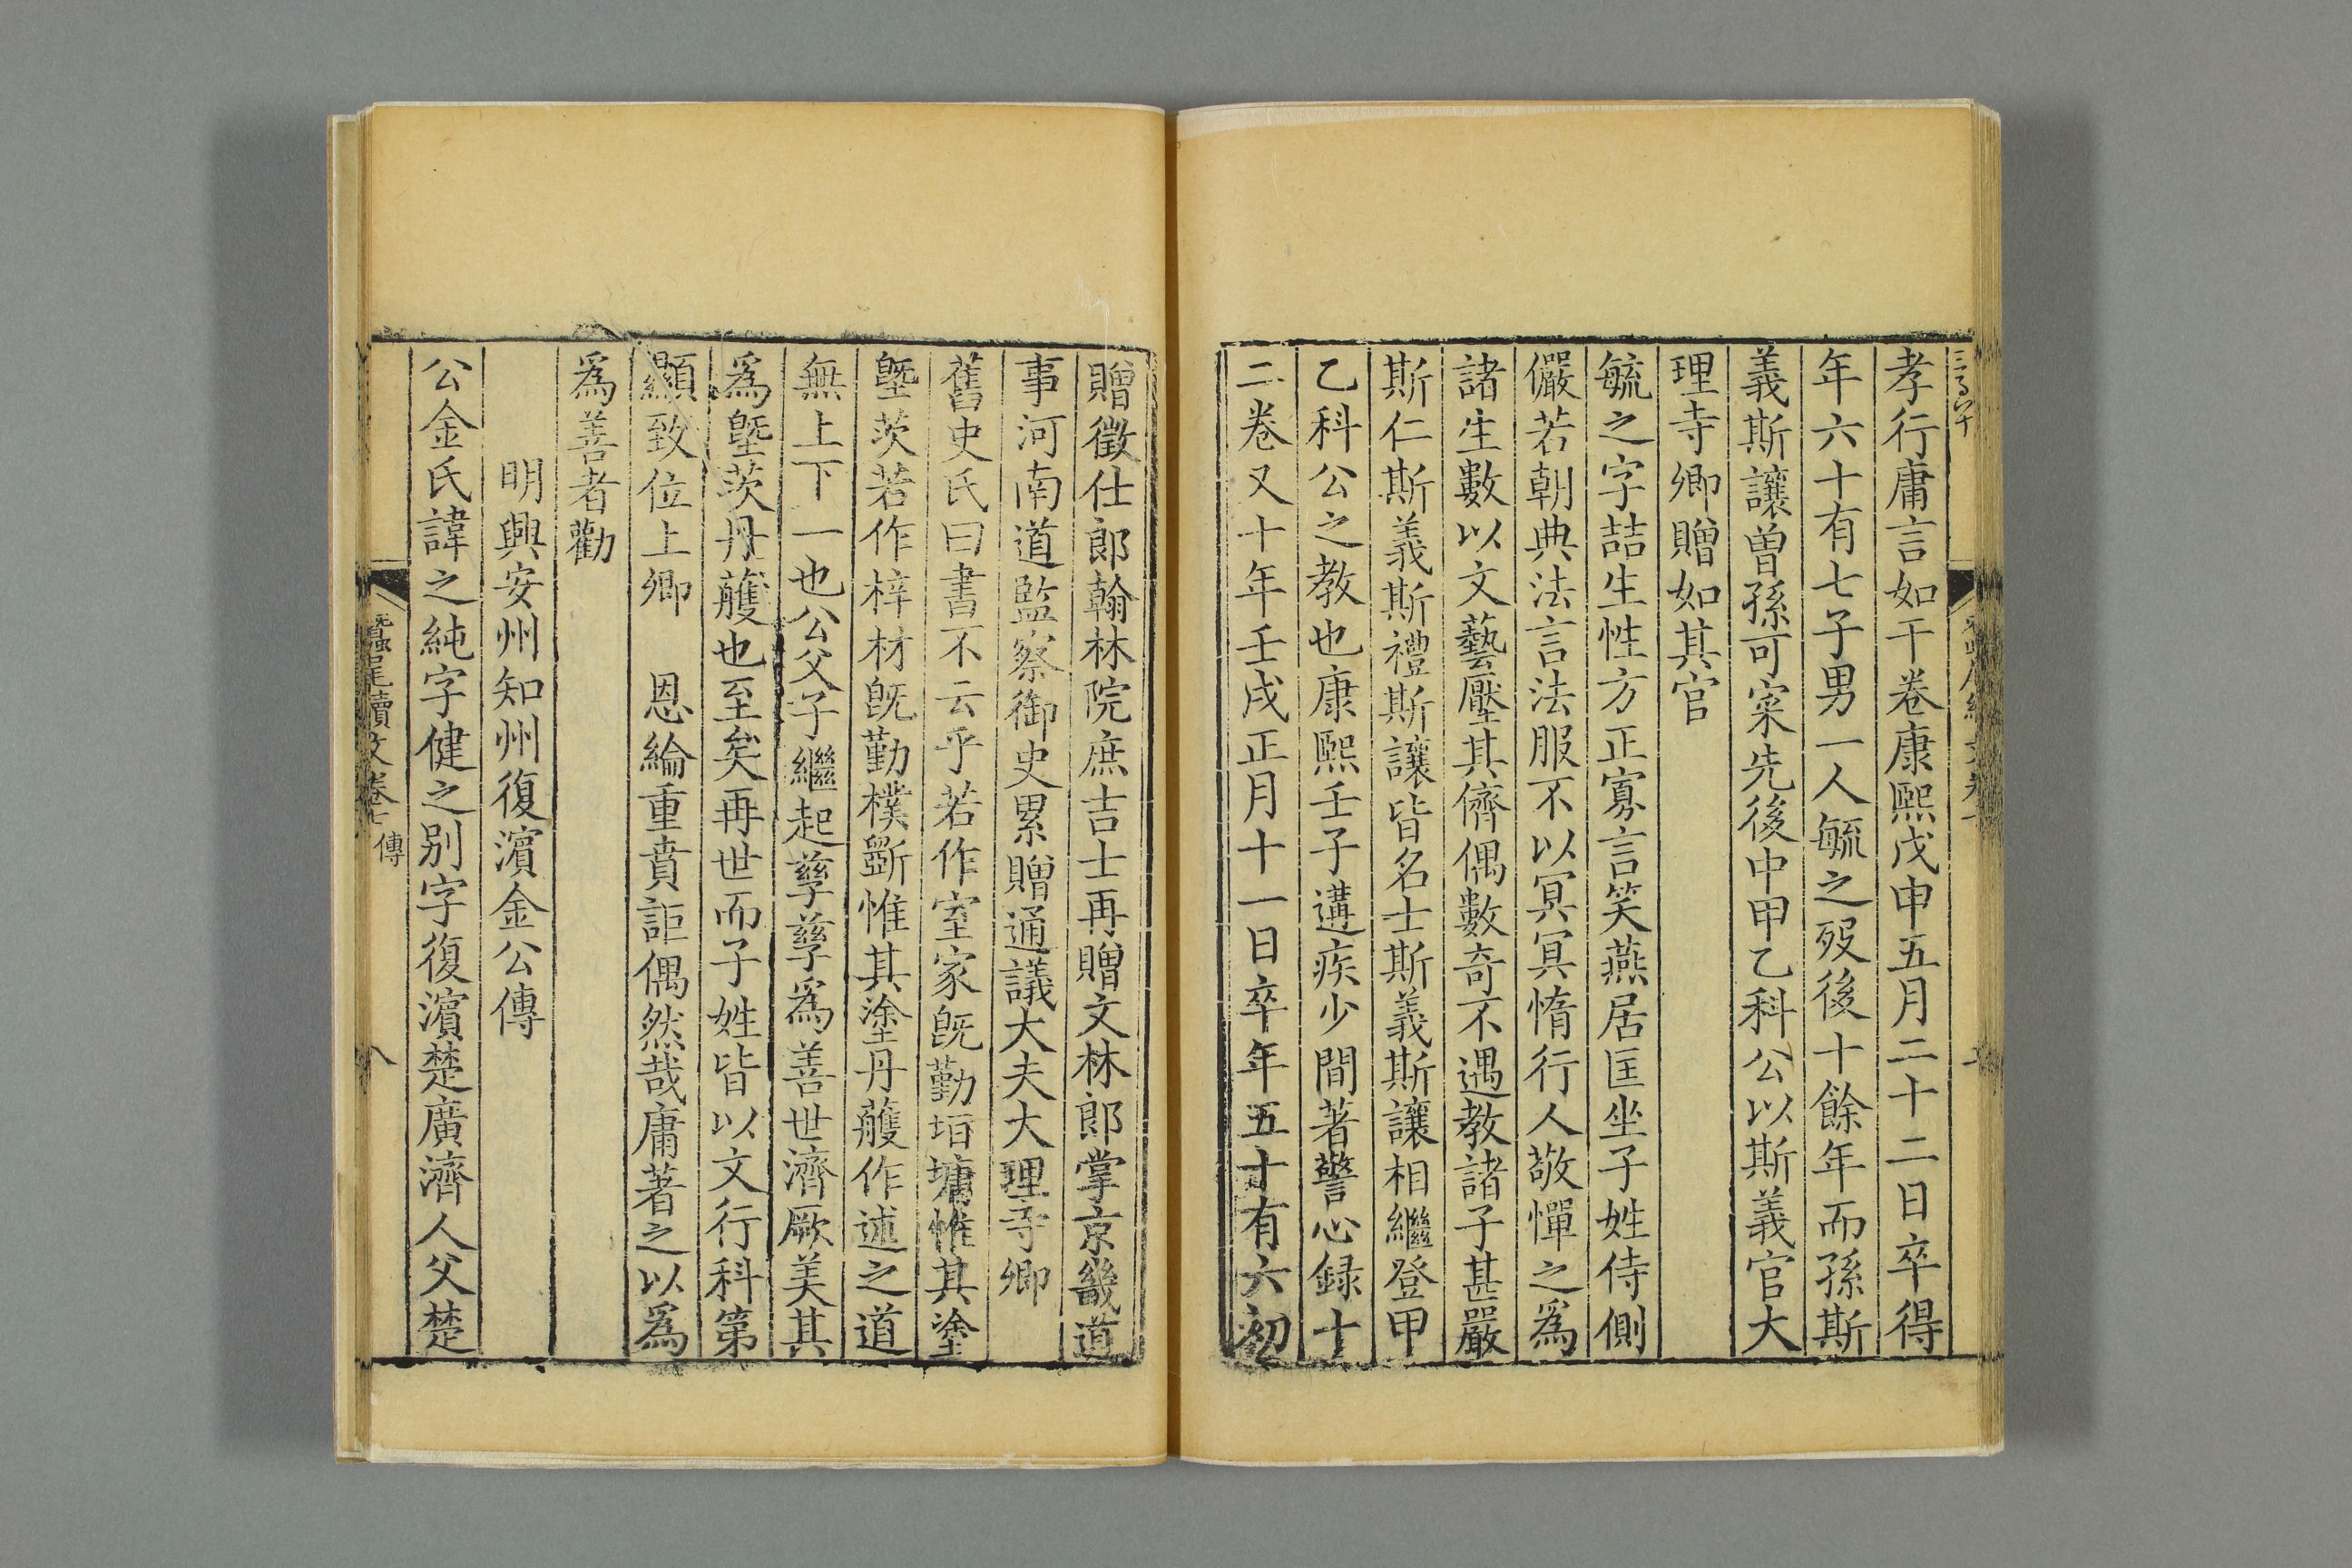 孝行庸言如干卷康熙戊申五月二十二日卒得
年六十有七子男一人毓之歿後十餘年而孫斯
義斯讓曾孫可寀先後中甲乙科公以斯義官大
理寺卿贈如其官
毓之字喆生性方正寡言笑燕居匡坐子姓侍側
儼若朝典法言法服不以冥冥惰行人敬憚之為
諸生數以文藝壓其儕偶數奇不遇教諸子甚嚴
斯仁斯義斯禮斯讓皆名士斯義斯讓相繼登甲
乙科公之教也康熙壬子遘疾少間著警心録十
二卷又十年壬戌正月十一日卒年五十有六初
贈徵仕郎翰林院庶吉士再贈文林郎掌京畿道
事河南道監察御史累贈通議大夫大理寺卿
舊史氏曰書不云乎若作室家旣勤垣墉惟其塗
塈茨若作梓材旣勤樸斲惟其塗丹雘作述之道
無上下一也公父子繼起孳孳為善世濟厥美其
為塈茨丹雘也至矣再世而子姓皆以文行科第
顯致位上卿 恩綸重賁詎偶然哉庸著之以為
為善者勸
明興安州知州復濱金公傳
公金氏諱之純字健之别字復濱楚廣濟人父楚
蠶尾續文卷七 傳 八